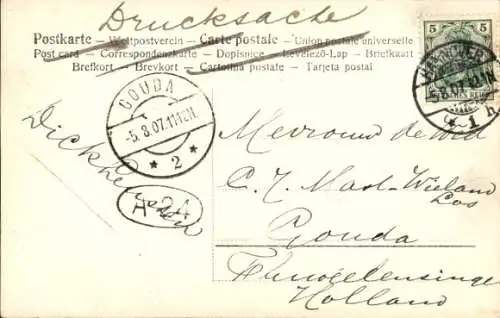 Drucksache
Postkarte — Weltpostverein — Carte postale — Union postale universelle
Post card — Correspondenzkarte — Dopisnice — Levelező-Lap — Briefkaart
Brefkort — Brevkort — Cartolina postale — Tarjeta postal
5 5
HANNOVER
5.8.07.
* 1 h
GOUDA
-5.8.07.11-12N.
* 2 *
A 24
Mevrouw de Wed
C. J. Mast-Wieland
Los
Gouda
Fluwelensingel
Holland